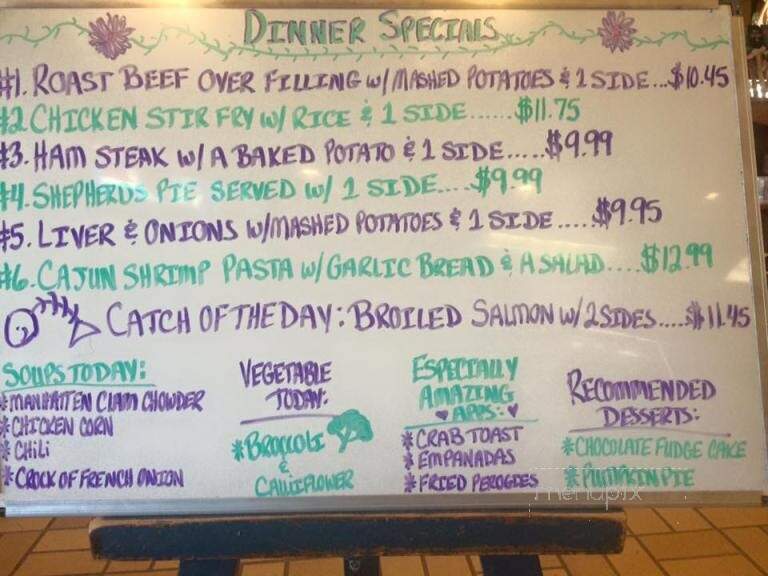 Dinner Specials
#1. Roast Beef over Filling w/ Mashed Potatoes & 1 Side...$10.45
#2 Chicken Stir Fry w/ Rice & 1 Side......$11.75
#3. Ham Steak w/ a Baked Potato & 1 Side.....$9.99
#4. Shepherds Pie served w/ 1 Side....$9.99
#5. Liver & Onions w/ Mashed Potatoes & 1 Side.....$9.95
#6. Cajun Shrimp Pasta w/ Garlic Bread & a Salad....$12.99
Catch of the Day: Broiled Salmon w/ 2 Sides.....$11.45
Soups Today:
*Manhatten Clam Chowder
*Chicken Corn
*Chili
*Crock of French Onion
Vegetable
Today:
*Broccoli
&
Cauliflower
Especially
Amazing
Apps:
*Crab Toast
*Empanadas
*Fried Perogies
Recommended
Desserts:
*Chocolate Fudge Cake
*Pumpkin Pie
menupix